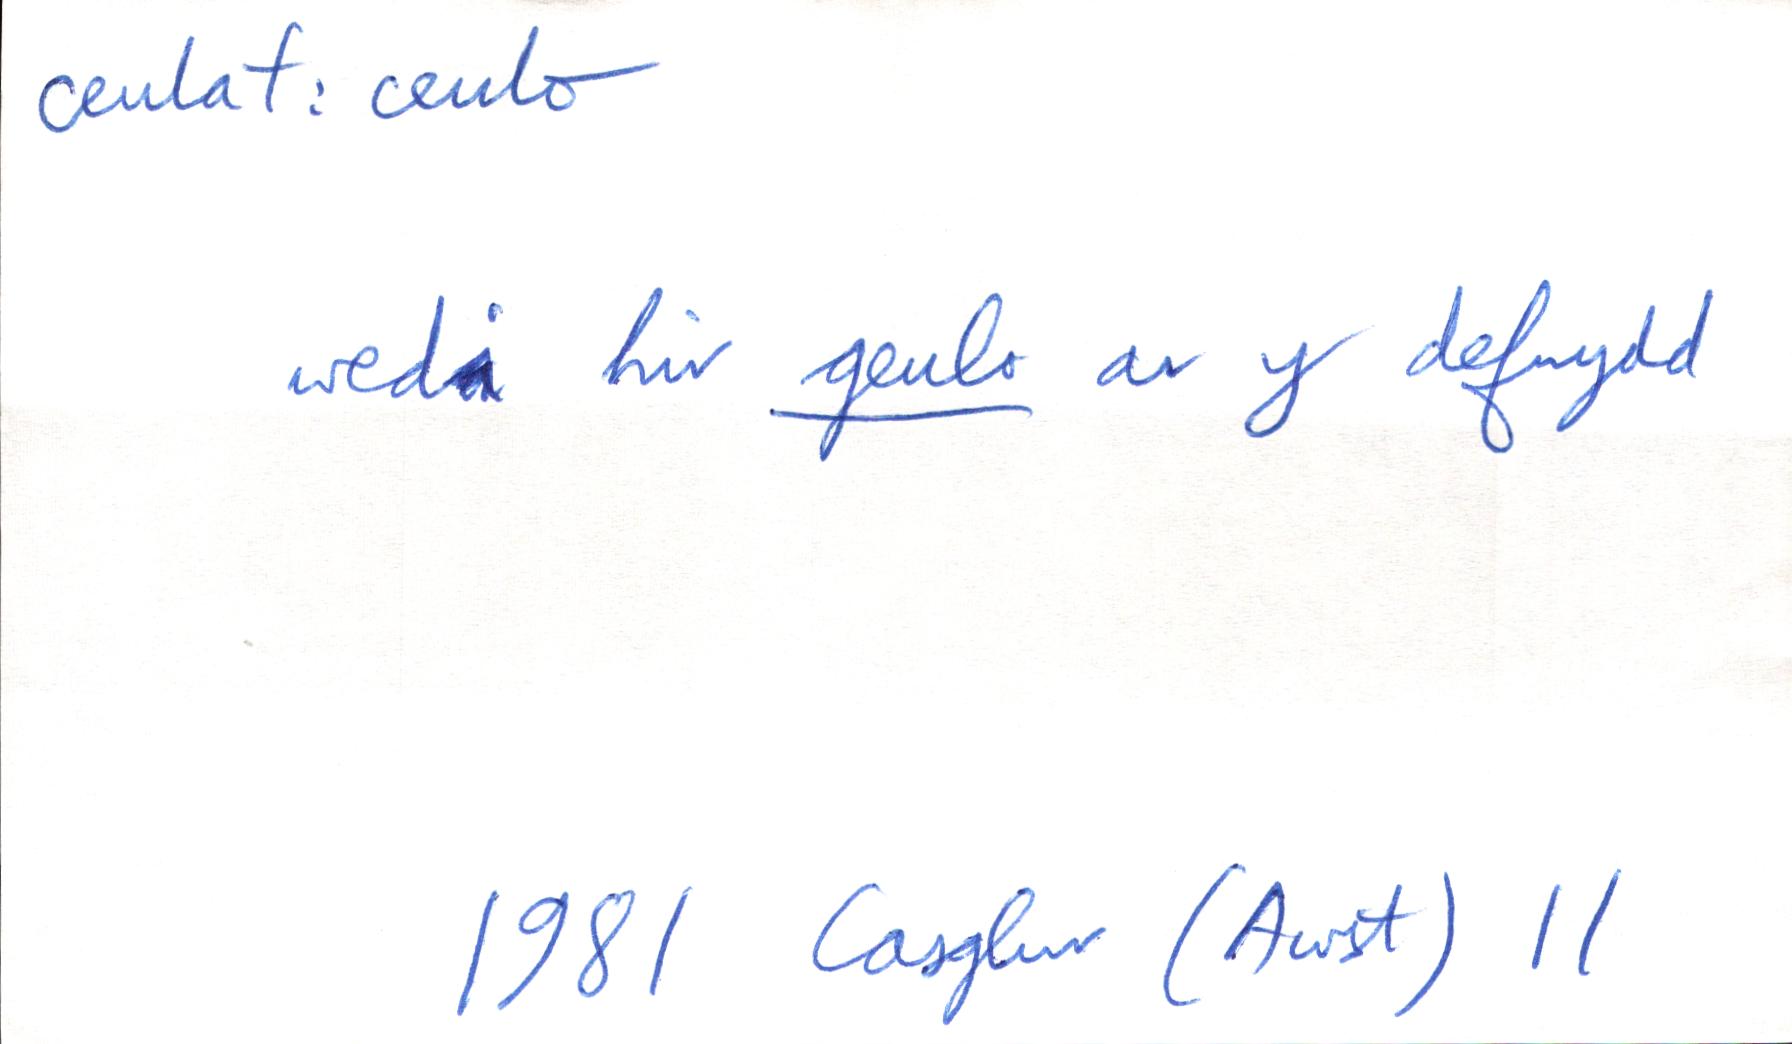 ceulaf: ceulo
wedi hir geulo ar y defnydd
1981 Casglwr (Awst) 11